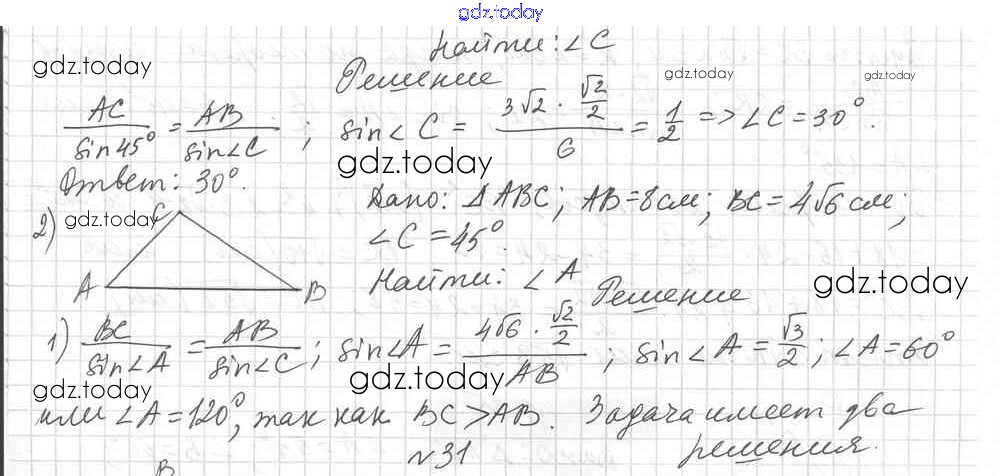 gdz.today
Найти: ∠C
gdz.today
Решение
gdz.today
gdz.today
AC/sin45° = AB/sin∠C ; sin∠C = (3√2 · √2/2)/6 = 1/2 => ∠C = 30°.
gdz.today
Ответ: 30°.
Дано: ΔABC; AB = 8см; BC = 4√6 см;
∠C = 45°.
2)
gdz.today
C
A
B
Найти: ∠A
Решение
gdz.today
1) BC/sin∠A = AB/sin∠C ; sin∠A = (4√6 · √2/2)/AB ; sin∠A = √3/2 ; ∠A = 60°
gdz.today
gdz.today
или ∠A = 120°, так как BC > AB. Задача имеет два
решения.
№31
B